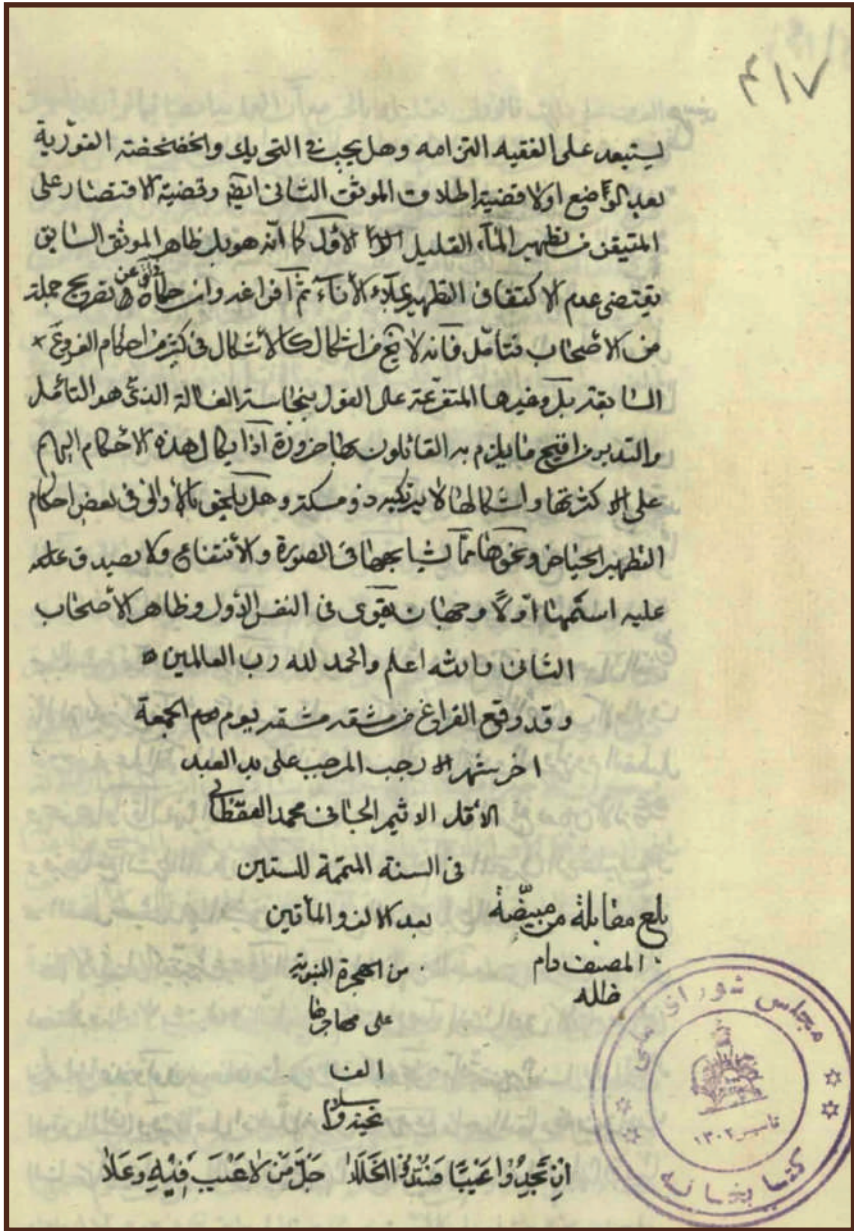 ٣١٧
ليستبعد على الفقيه التزامه وهل يجب في التحريك والخضخضة الفورية
بعد الوضع اولا قضية اطلاق الموثق الثاني وقضية الاقتصار على
المتيقن من تطهير الماء القليل الاول كما انه هو بل ظاهر الموثق السابق
يقتضي عدم الاكتفاء في التطهير بملاء الأناء ثم افراغه وان عن تصريح جملة
من الأصحاب فتأمل فانه لا يخ من اشكال كالأشكال في كثير من احكام الفروع
السابقة بل وغيرها المتفرعة على القول بنجاسة الغسالة الذي هو التأمل
والتدبر من اقبح ما يلزم به القائلون بها ضرورة اذ ايكال هذه الاحكام اليهم
على كثرتها واشكالها لا يرتكبه ذو مسكة وهل يلحق بالأواني في بعض احكام
التطهير الحياض ونحوها مما يشابهها في الصورة والأنتفاع ولا يصدق
عليه اسمها اولا وجهان يقوى في النفس الأول وظاهر الأصحاب
الثاني والله اعلم والحمد لله رب العالمين
وقد وقع الفراغ من مشقه مشقه يوم الجمعة
اخر شهر رجب المرجب على يد العبد
الاقل الاثيم الجاني محمد
في السنة المتممة للستين
بعد الالف والمأتين
من الهجرة النبوية
على مهاجرها
الف
تحية وسلام
بلغ مقابلة من مبيضة
المصنف دام
ظله
ان تجدوا عيبا فسدوا الخللا جل من لا عيب فيه وعلا
مجلس شوراى ملى
تأسيس ١٣٠٢
كتابخانه